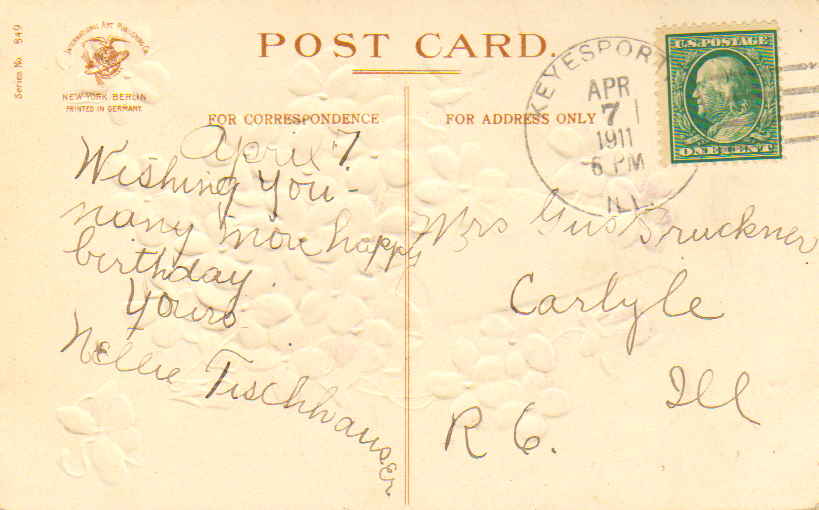 Series No. 849
International Art Publishing Co.
NEW YORK BERLIN
PRINTED IN GERMANY
POST CARD.
KEYESPORT
APR
7
1911
6 PM
ILL.
U.S. POSTAGE
ONE CENT
FOR CORRESPONDENCE
FOR ADDRESS ONLY
April 7.
Wishing you -
many more happy
birthday.
Yours
Nellie Tischhauser
Mrs Gus Bruckner
Carlyle
Ill
R 6.